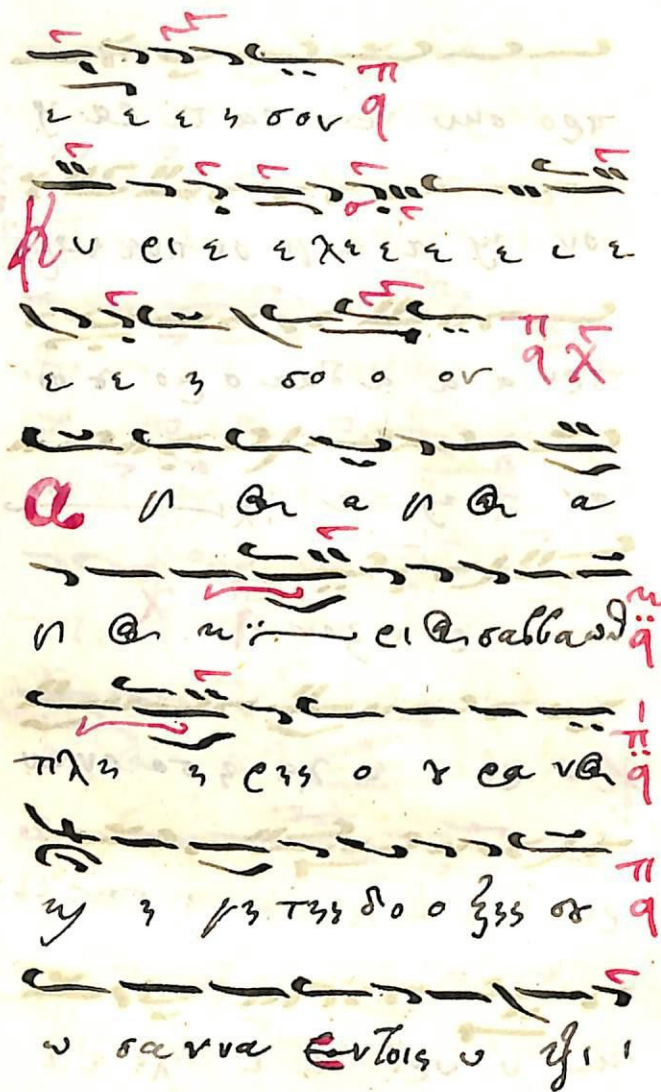 ε ε ε η σον
Κυ ρι ε ε λε ε ε ε ε ε
ε ε η σο ο ον
Α γι ος α γι ος α
γι ος κυ ρι ος σαββαωθ
πλη η ρης ο ου ρα νος
και η γη της δο ο ξης σου
ω σα ννα εν τοις υ ψι ι